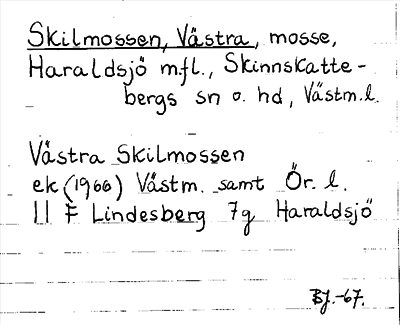 Skilmossen, Västra, mosse,
Haraldsjö m.fl., Skinnskatte-
bergs sn o. hd, Västm.l.
Västra Skilmossen
ek (1966) Västm. samt Ör. l.
11 F Lindesberg 7g Haraldsjö
BJ.-67.